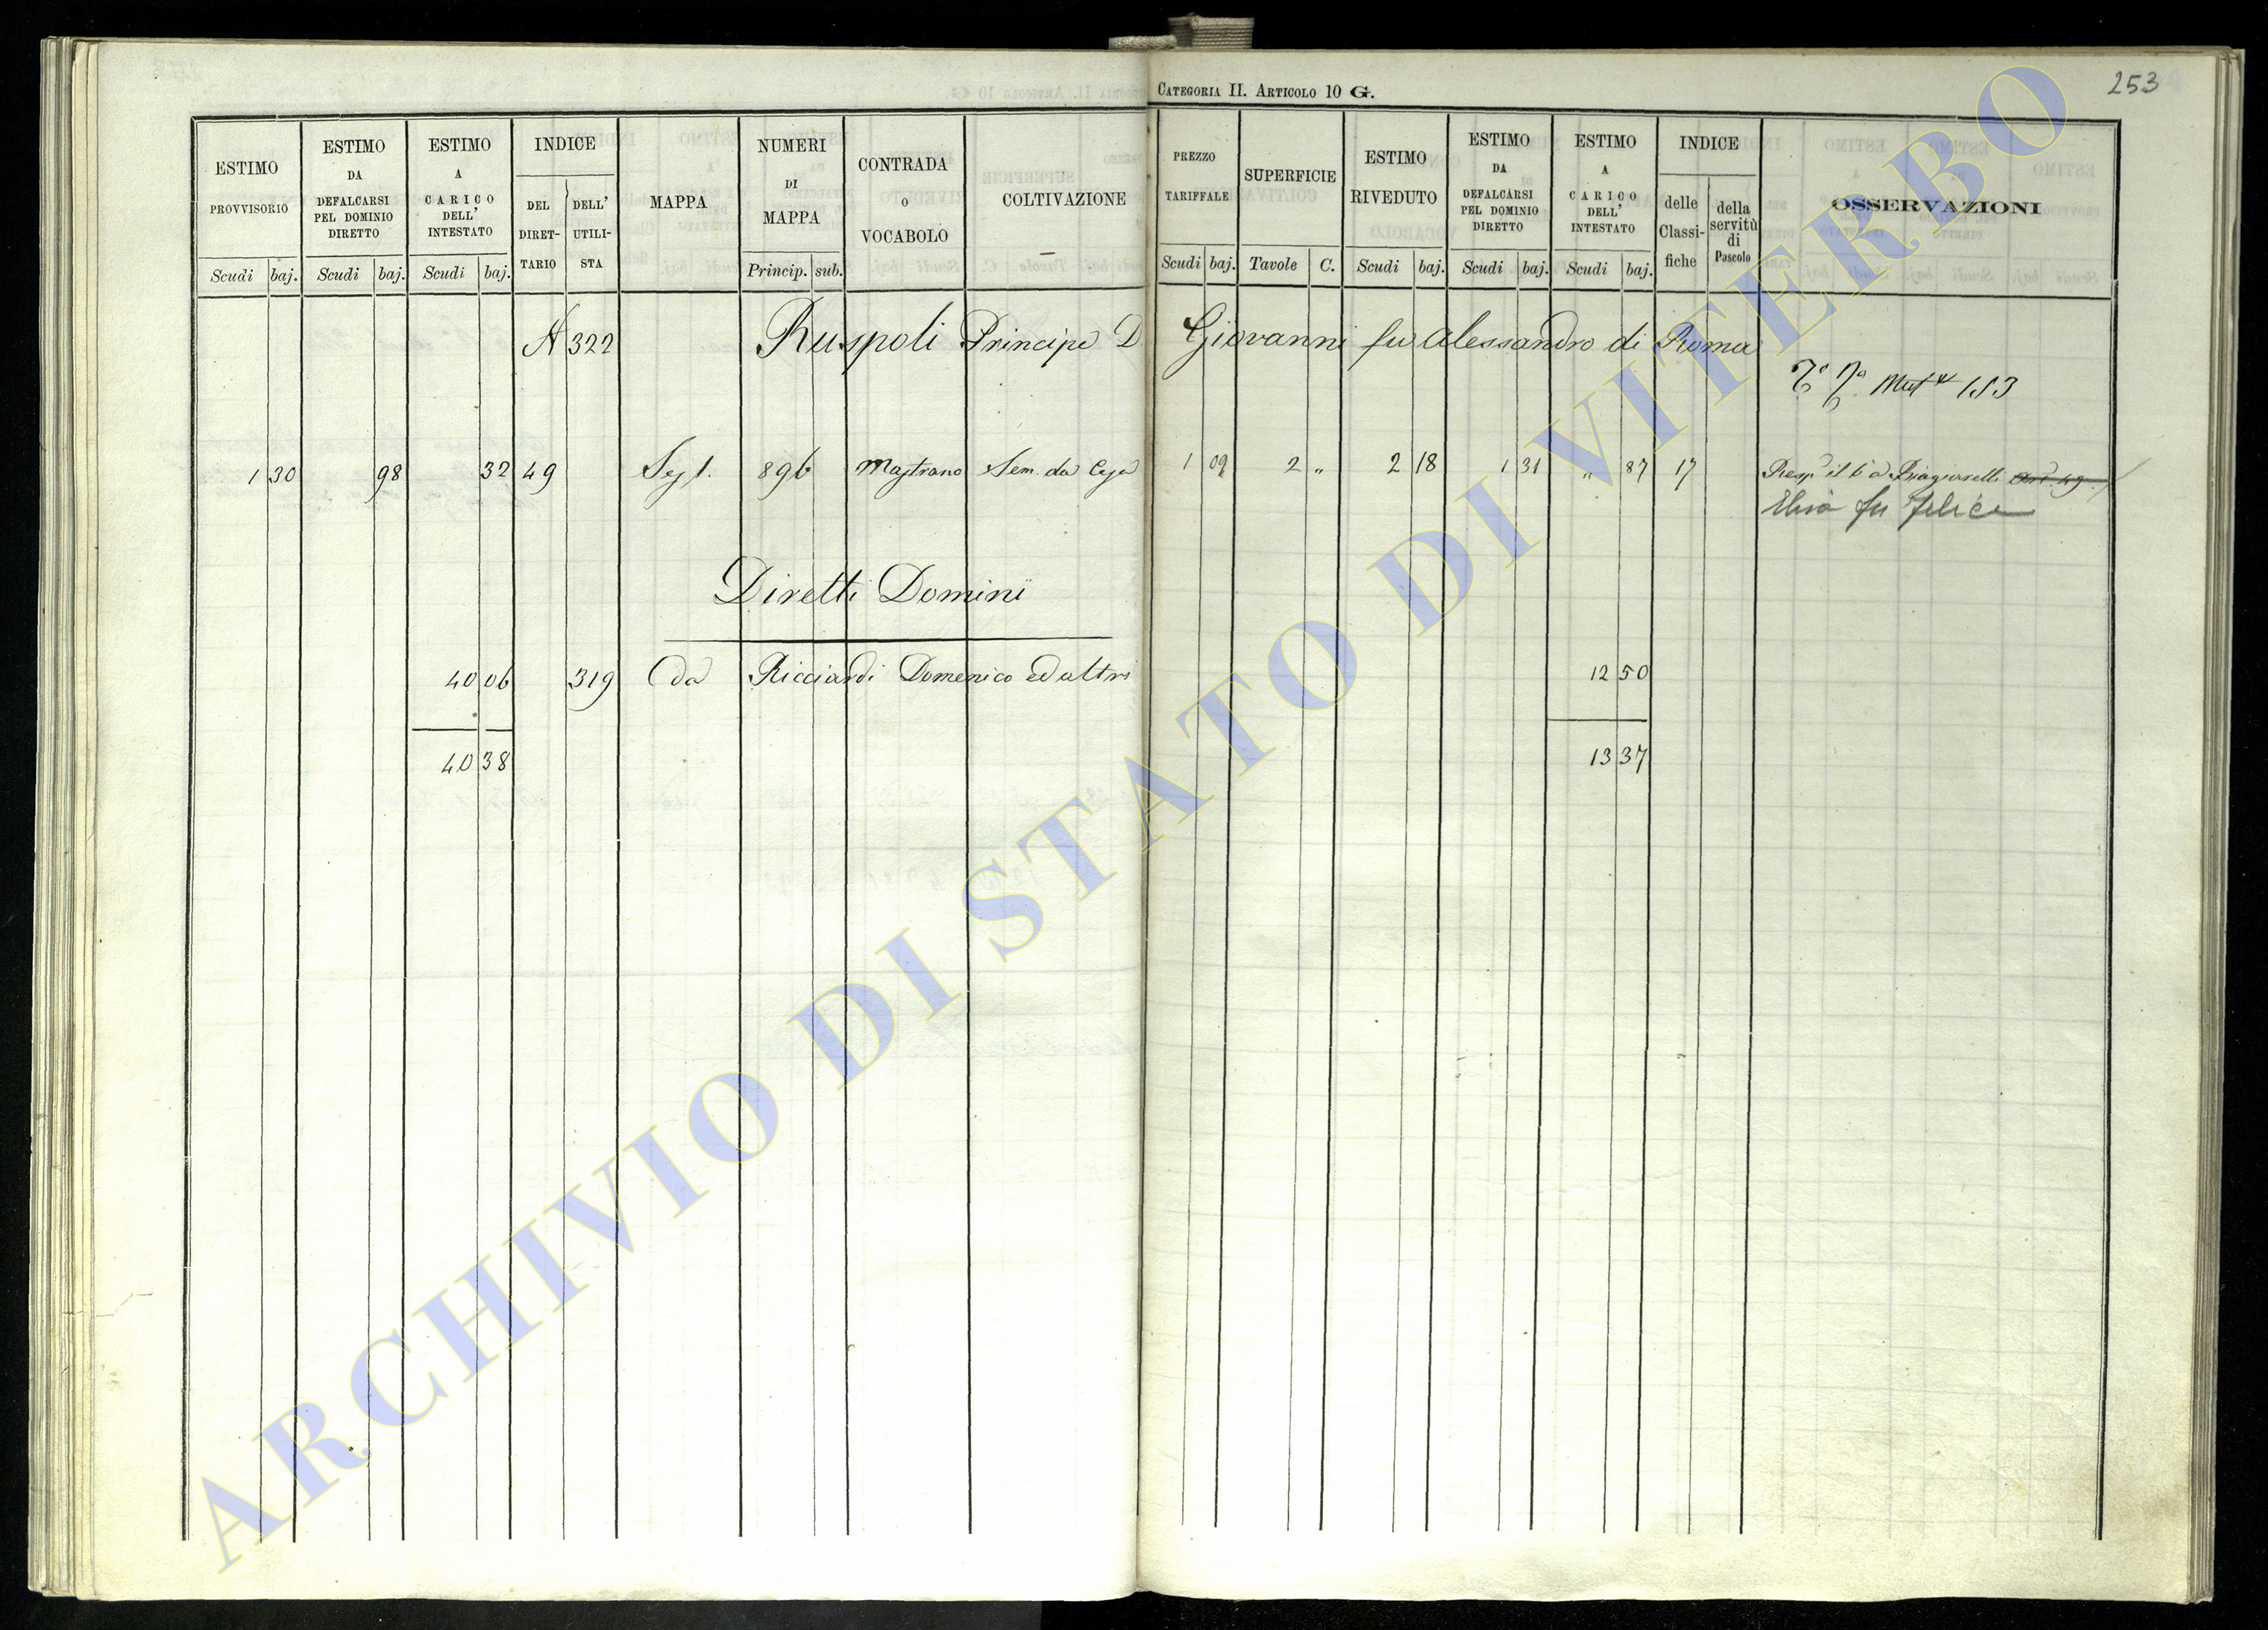 CATEGORIA II. ARTICOLO 10 G.
253
ESTIMO PROVVISORIO
ESTIMO DA DEFALCARSI PEL DOMINIO DIRETTO
ESTIMO A CARICO DELL' INTESTATO
INDICE
DEL DIRETTARIO
DELL' UTILISTA
MAPPA
NUMERI DI MAPPA
CONTRADA O VOCABOLO
COLTIVAZIONE
PREZZO TARIFFALE
SUPERFICIE
ESTIMO RIVEDUTO
ESTIMO DA DEFALCARSI PEL DOMINIO DIRETTO
ESTIMO A CARICO DELL' INTESTATO
INDICE
delle Classifiche
della servitù di Pascolo
OSSERVAZIONI
Scudi baj. Scudi baj. Scudi baj. Princip. sub. Scudi baj. Tavole C. Scudi baj. Scudi baj. Scudi baj.
A 322 Ruspoli Principe D Giovanni fu Alessandro di Roma
153
1 30 98 32 49 Sez 1. 896 Mastrano Sem. da 1 09 2 " 2 18 1 31 " 87 17
fu Felice
Diretti Domini
40 06 319 Da Ricciardi Domenico ed altri 12 50
40 38 13 37
ARCHIVIO DI STATO DI VITERBO